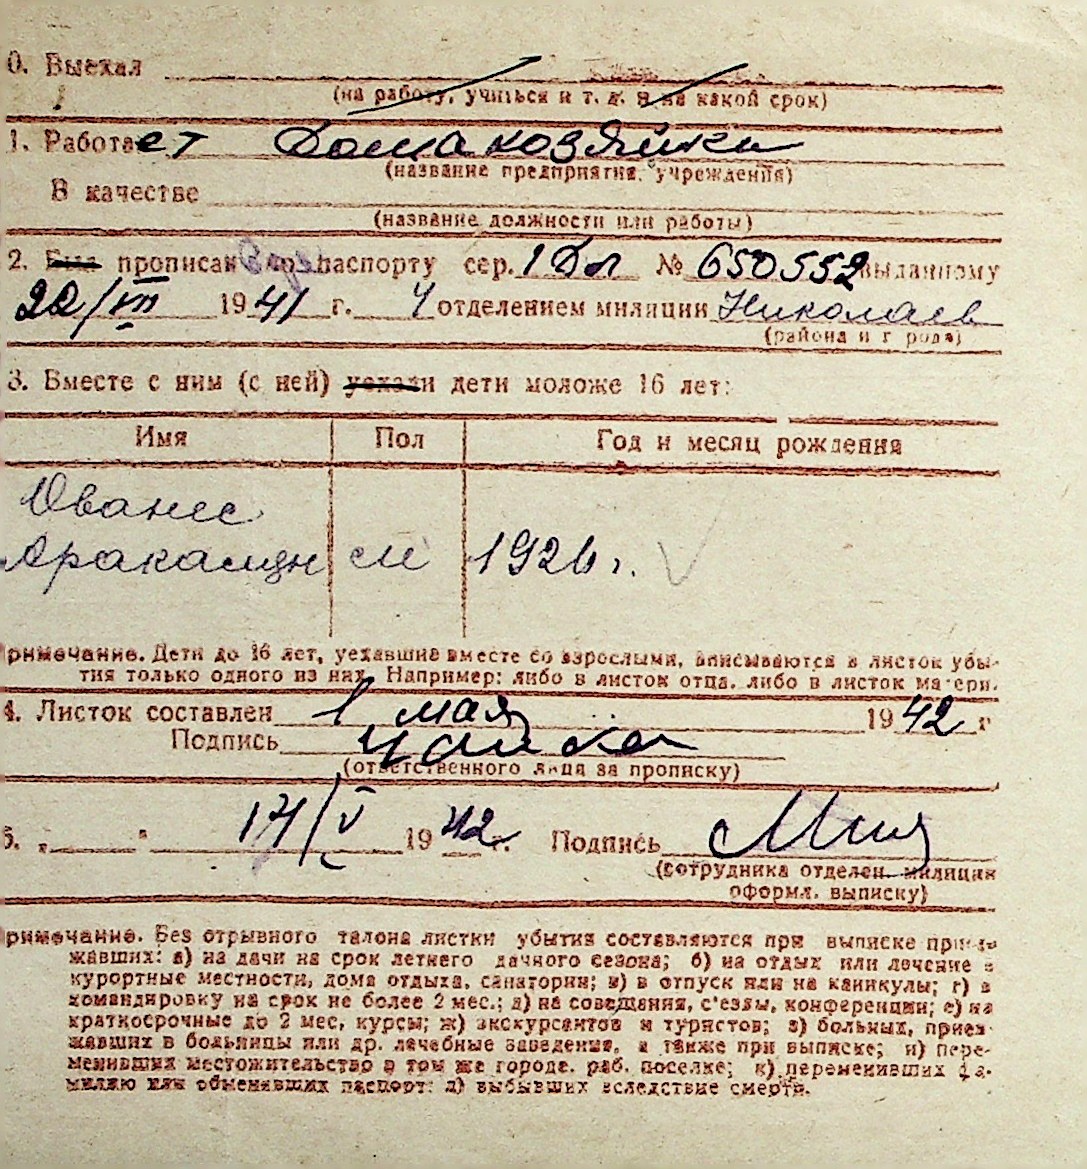 0. Выехал
(на работу, учиться и т. д. и на какой срок)
1. Работает Домахозяйки
(название предприятия, учреждения)
В качестве
(название должности или работы)
2. Был прописан по паспорту сер. 1 Дл № 650552 выданному
22/VII 1941 г. 4 отделением милиции Николаев
(района и г рода)
3. Вместе с ним (с ней) уехали дети моложе 16 лет:
Имя Пол Год и месяц рождения
Ованес
Аракамян м 1926 г.
римечание. Дети до 16 лет, уехавшие вместе со взрослыми, вписываются в листок убы-
тия только одного из них. Например: либо в листок отца, либо в листок матери.
4. Листок составлен 1 мая 1942 г
Подпись
(ответственного лица за прописку)
5. „ " 17/V 1942 г. Подпись
(сотрудника отделен. милиции
оформл. выписку)
римечание. Без отрывного талона листки убытия составляются при выписке приез-
жавших: а) на дачи на срок летнего дачного сезона; б) на отдых или лечение в
курортные местности, дома отдыха, санатории; в) в отпуск или на каникулы; г) в
командировку на срок не более 2 мес.; д) на совещания, с'езды, конференции; е) на
краткосрочные до 2 мес, курсы; ж) экскурсантов и туристов; з) больных, приез-
жавших в больницы или др. лечебные заведения, а также при выписке; и) пере-
менивших местожительство в том же городе, раб. поселке; к) переменивших фа-
милию или обменявших паспорт: л) выбывших вследствие смерти.